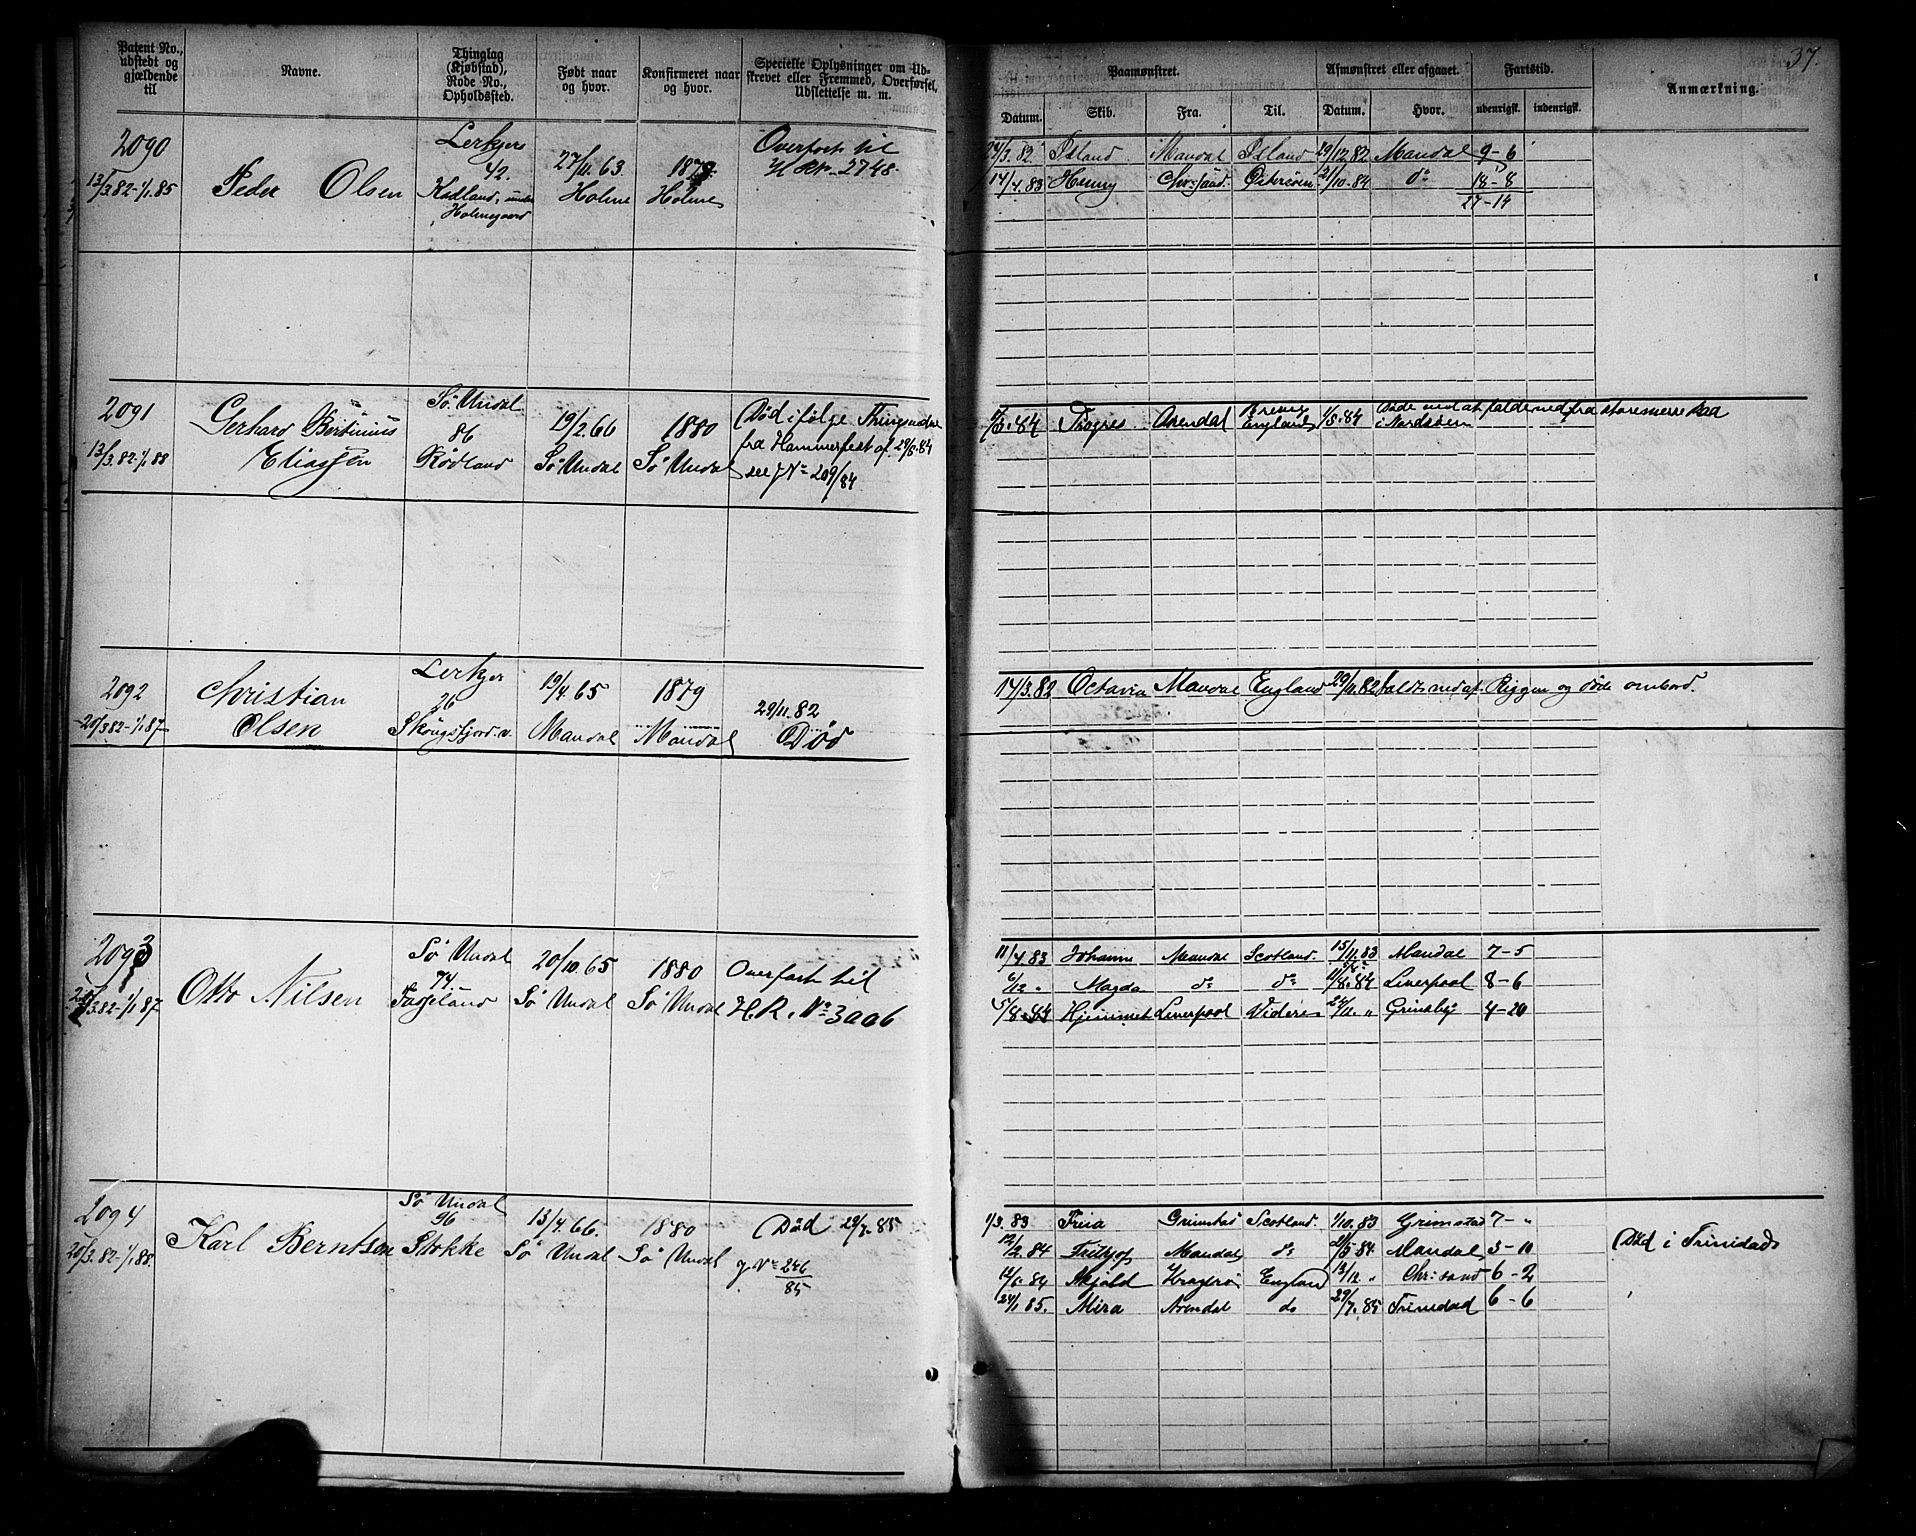 37.
Patent No., udstedt og gjældende til
Navne.
Thinglag (Kjøbstad), Rode No., Opholdssted.
Født naar og hvor.
Konfirmeret naar og hvor.
Specielle Oplysninger om Udskrevet eller Fremmed, Overførsel, Udslettelse m. m.
Paamønstret.
Afmønstret eller afgaaet.
Fartstid.
Anmærkning.
Datum.
Skib.
Fra.
Til.
Datum.
Hvor.
udenrigsk.
indenrigsk.
2090
13/3.82-1/1.85
Peder Olsen
42.
Holmegaard
Holme
Holme
Overført til
2748.
Island Mandal Island 29/12.82 Mandal 9-6
14/4.83 Henny Chr:sand. 31/10.84 do 18-8
27-14
2091
13/3.82-1/1.88
Gerhard Bertinius
Eliassen
Sø Undal
86
Rødland
19/2.66
Sø Undal
1880
Sø Undal
Død ifølge
fra Hammerfest af 29/8.84
see J No 209/84
Progres Arendal England 1/8.84 Døde ved at falde ned fra storemerse Raa
i Nordsøen
2092
20/3.82-1/1.87
Christian
Olsen
26
19/4.65
Mandal
1879
Mandal
29/11.82
Død
17/3.82 Octavia Mandal England 29/11.82 faldt ned af Riggen og døde ombord.
2093
20/3.82-1/1.87
Otto Nilsen
Sø Undal
74.
20/10.65
Sø Undal
1880
Sø Undal
Overført til
H.R. No 3006
11/4.83 Johanne Mandal Scotland. 15/11.83 Mandal 7-5
6/12 " Magda do do Liverpool 8-6
5/8.84 Hjemmet Liverpool Videre Grimsby 4-20
2094
20/3.82-1/1.88.
Karl Berntsen
Sø Undal
96
Stokke
13/4.66.
Sø Undal
1880
Sø Undal
Død 29/7.85
J. No 246/85
1/3.83 Freia Grimstad Scotland. 1/10.83 Grimstad 7-"
12/2.84 Fritjof Mandal do Mandal 3-10
Skjold Kragerø England 13/12 " Chr:sand 6-2
24/1.85. Mira Arendal do 29/7.85 Trinidad 6-6
Død i Trinidad